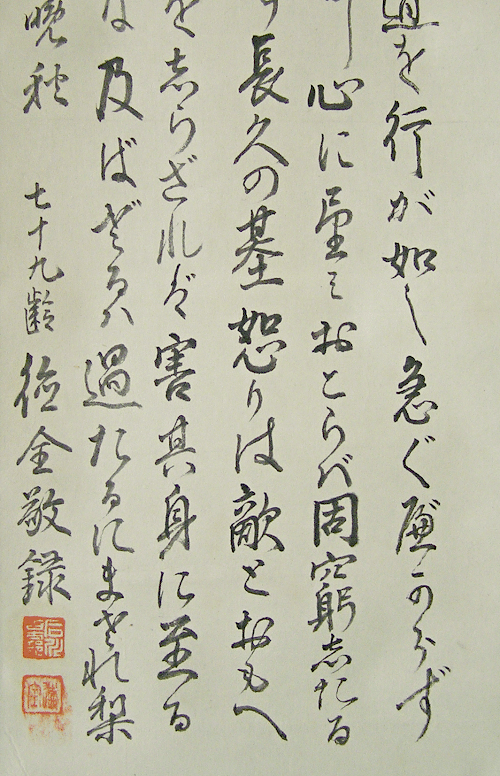 道を行が如し急ぐ べからず
心に望ミおこらば困窮志たる
長久の基怒りは敵とおもへ
を志らざれば害其身に至る
な及ばざるハ過たるにまされ梨
晩秋 七十九齢 敬録